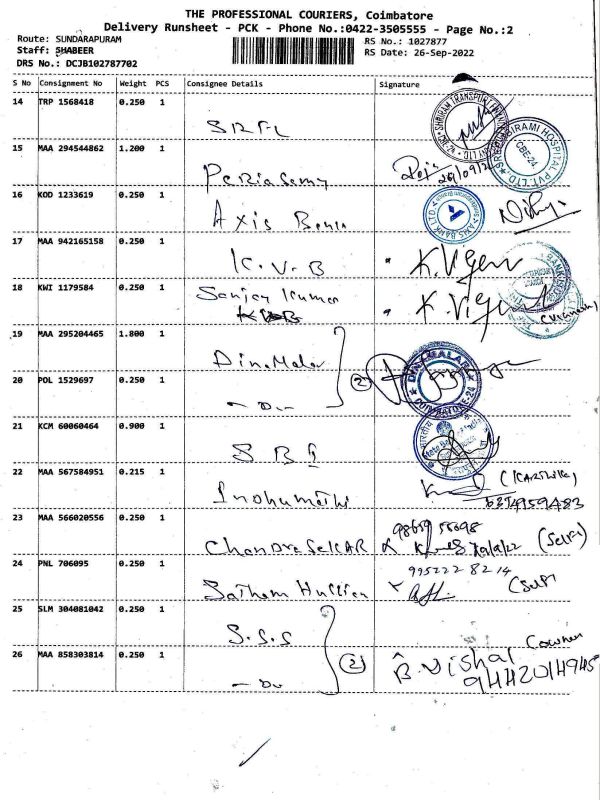 THE PROFESSIONAL COURIERS, Coimbatore
Delivery Runsheet - PCK - Phone No.:0422-3505555 - Page No.:2
Route: SUNDARAPURAM
Staff: SHABEER
DRS No.: DCJB102787702
RS No.: 1027877
RS Date: 26-Sep-2022
S No Consignment No Weight PCS Consignee Details Signature
14 TRP 1568418 0.250 1
15 MAA 294544862 1.200 1 Periasamy
16 KOD 1233619 0.250 1 Axis Bank
17 MAA 942165158 0.250 1 K.V.B
18 KWI 1179584 0.250 1 Sanjay Kumar
19 MAA 295204465 1.800 1 DinaMalar
20 POL 1529697 0.250 1 - Do - 2
21 KCM 60060464 0.900 1 SBI
22 MAA 567584951 0.215 1 Indhumathi (KARTHIK)
23 MAA 566020556 0.250 1 ChandraSekAR (Self)
24 PNL 706095 0.250 1 Satham Hussien 995222 8214 (Self)
25 SLM 304081042 0.250 1 S.S.S
26 MAA 858303814 0.250 1 - Do - 2 B. Vishal (owner
9442014945
DINAMALAR
COIMBATORE-24
AXIS BANK LTD.
CBE-24